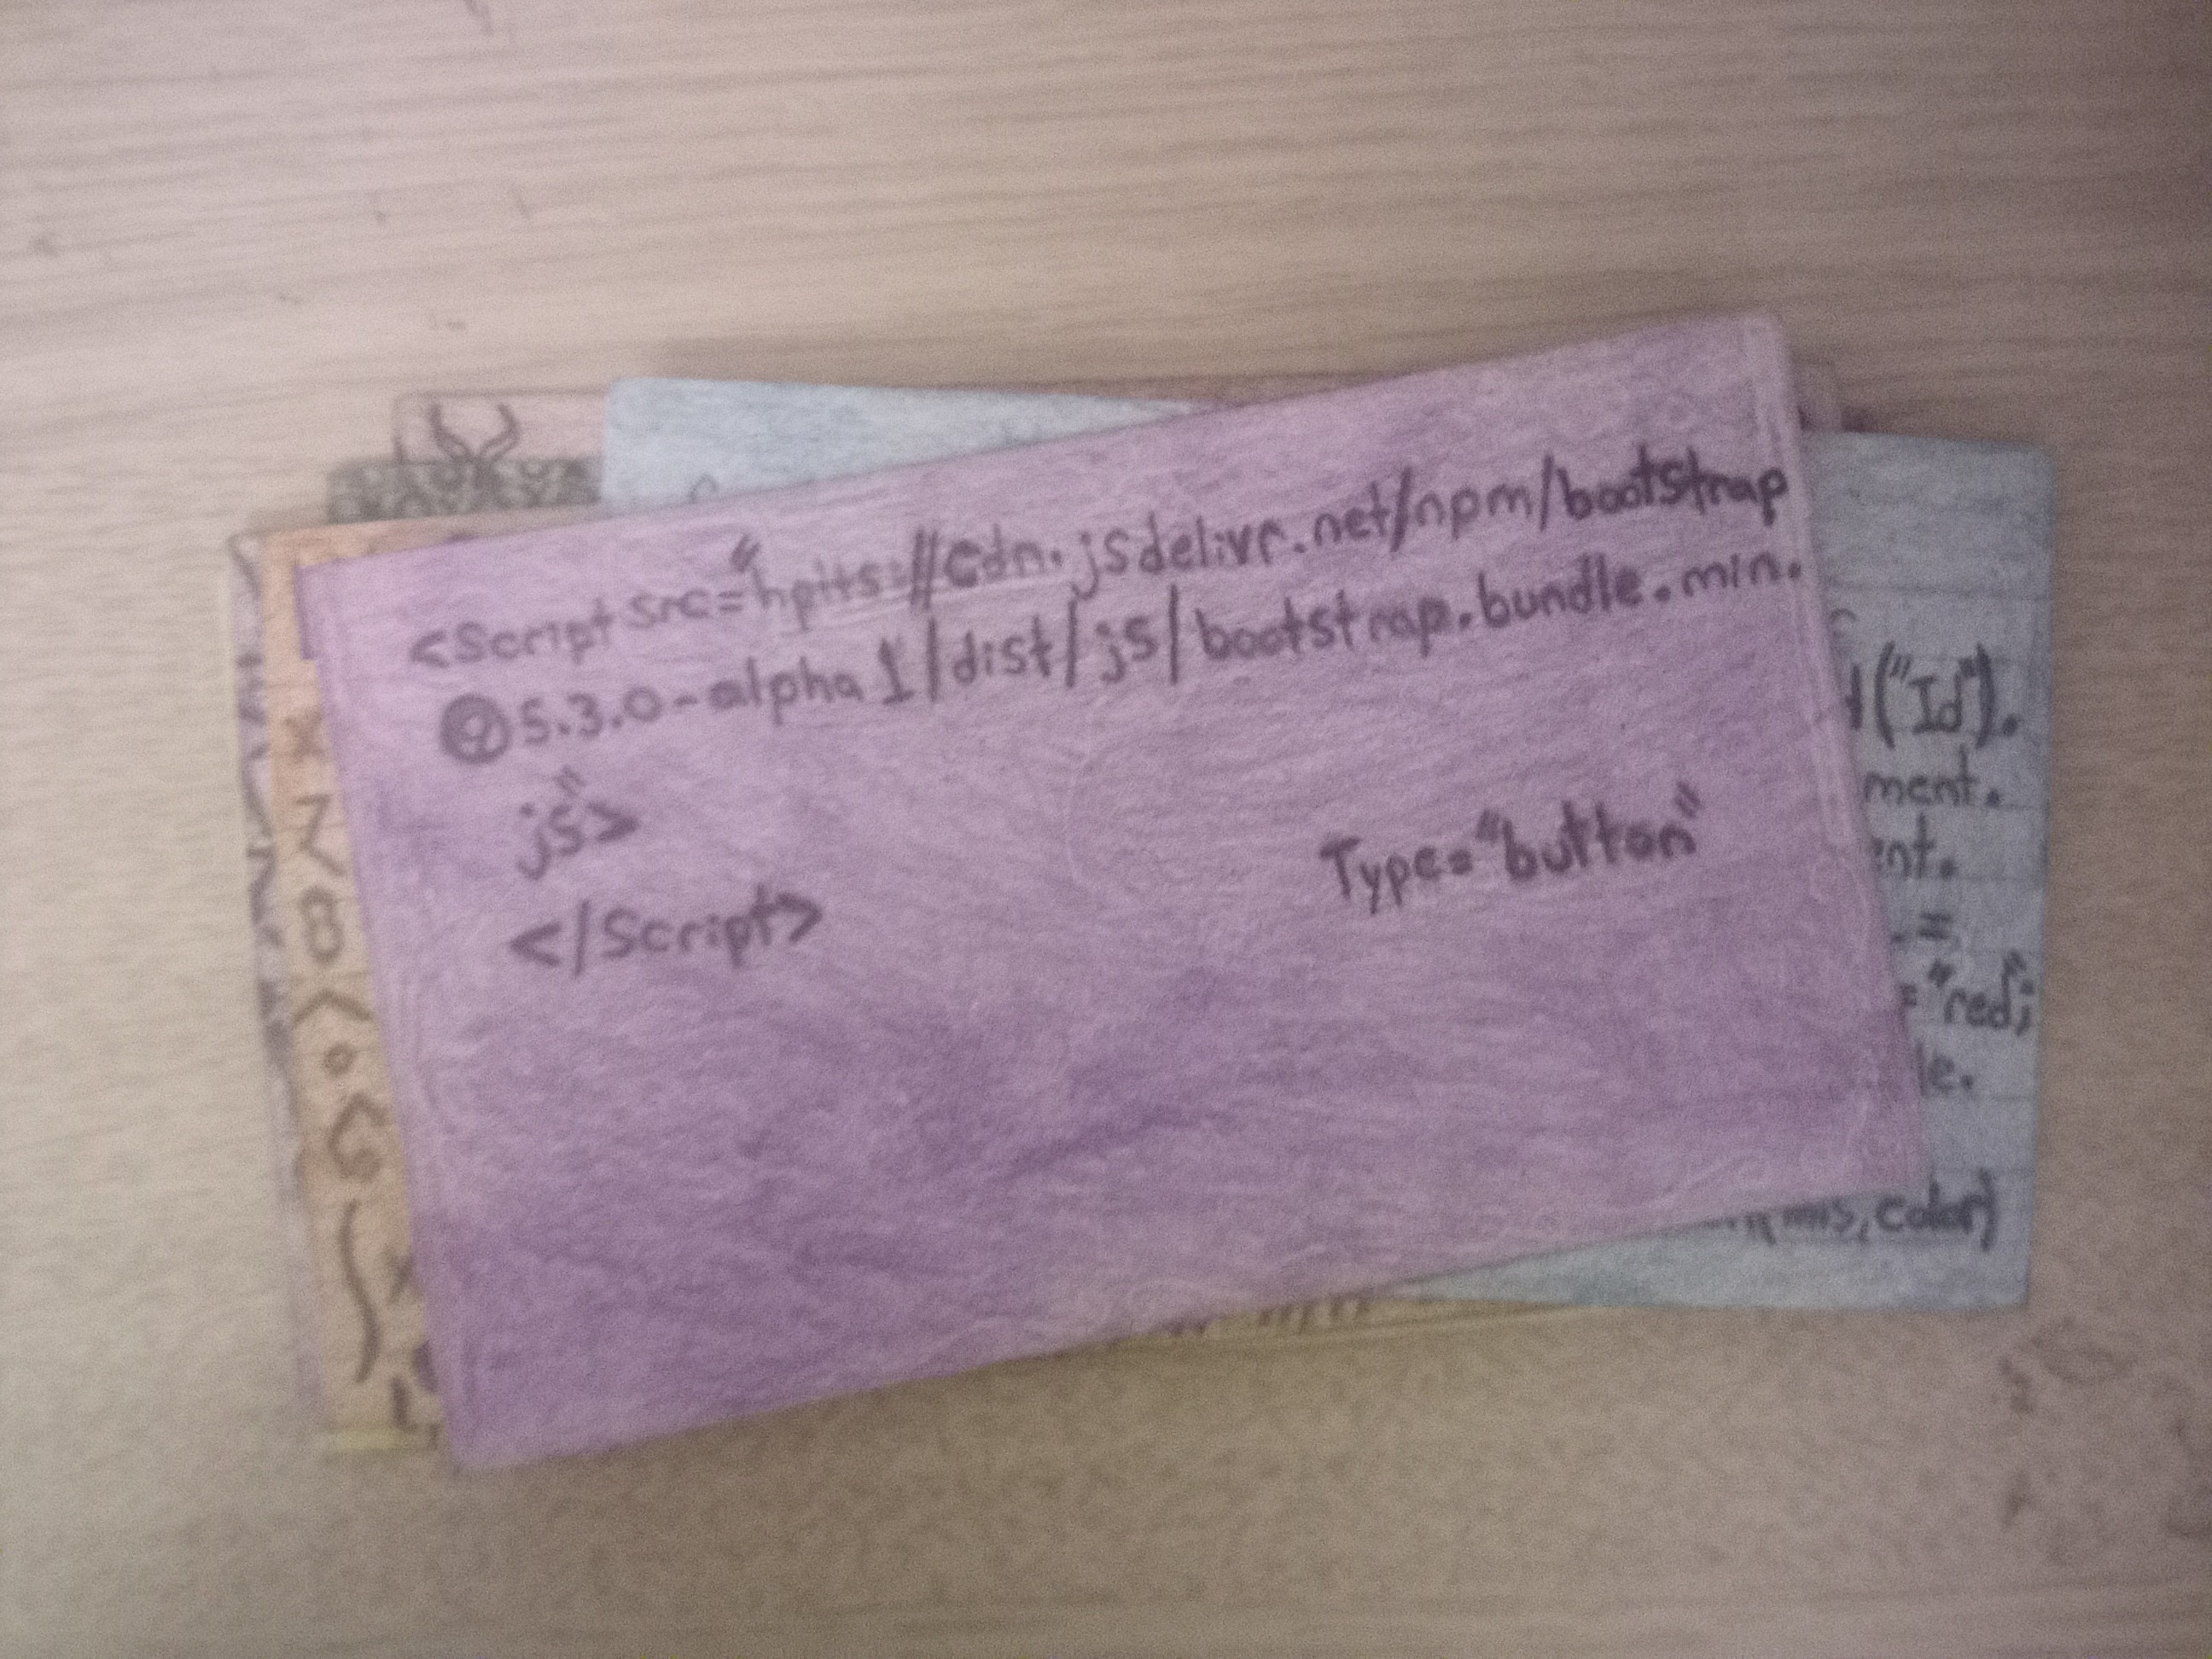 <Script src="hpits://cdn.jsdelivr.net/npm/bootstrap
@5.3.0-alpha1/dist/js/bootstrap.bundle.min.
js">
</Script>
Type="button"
("Id").
ment.
ent.
=
= "red;
le.
,color)